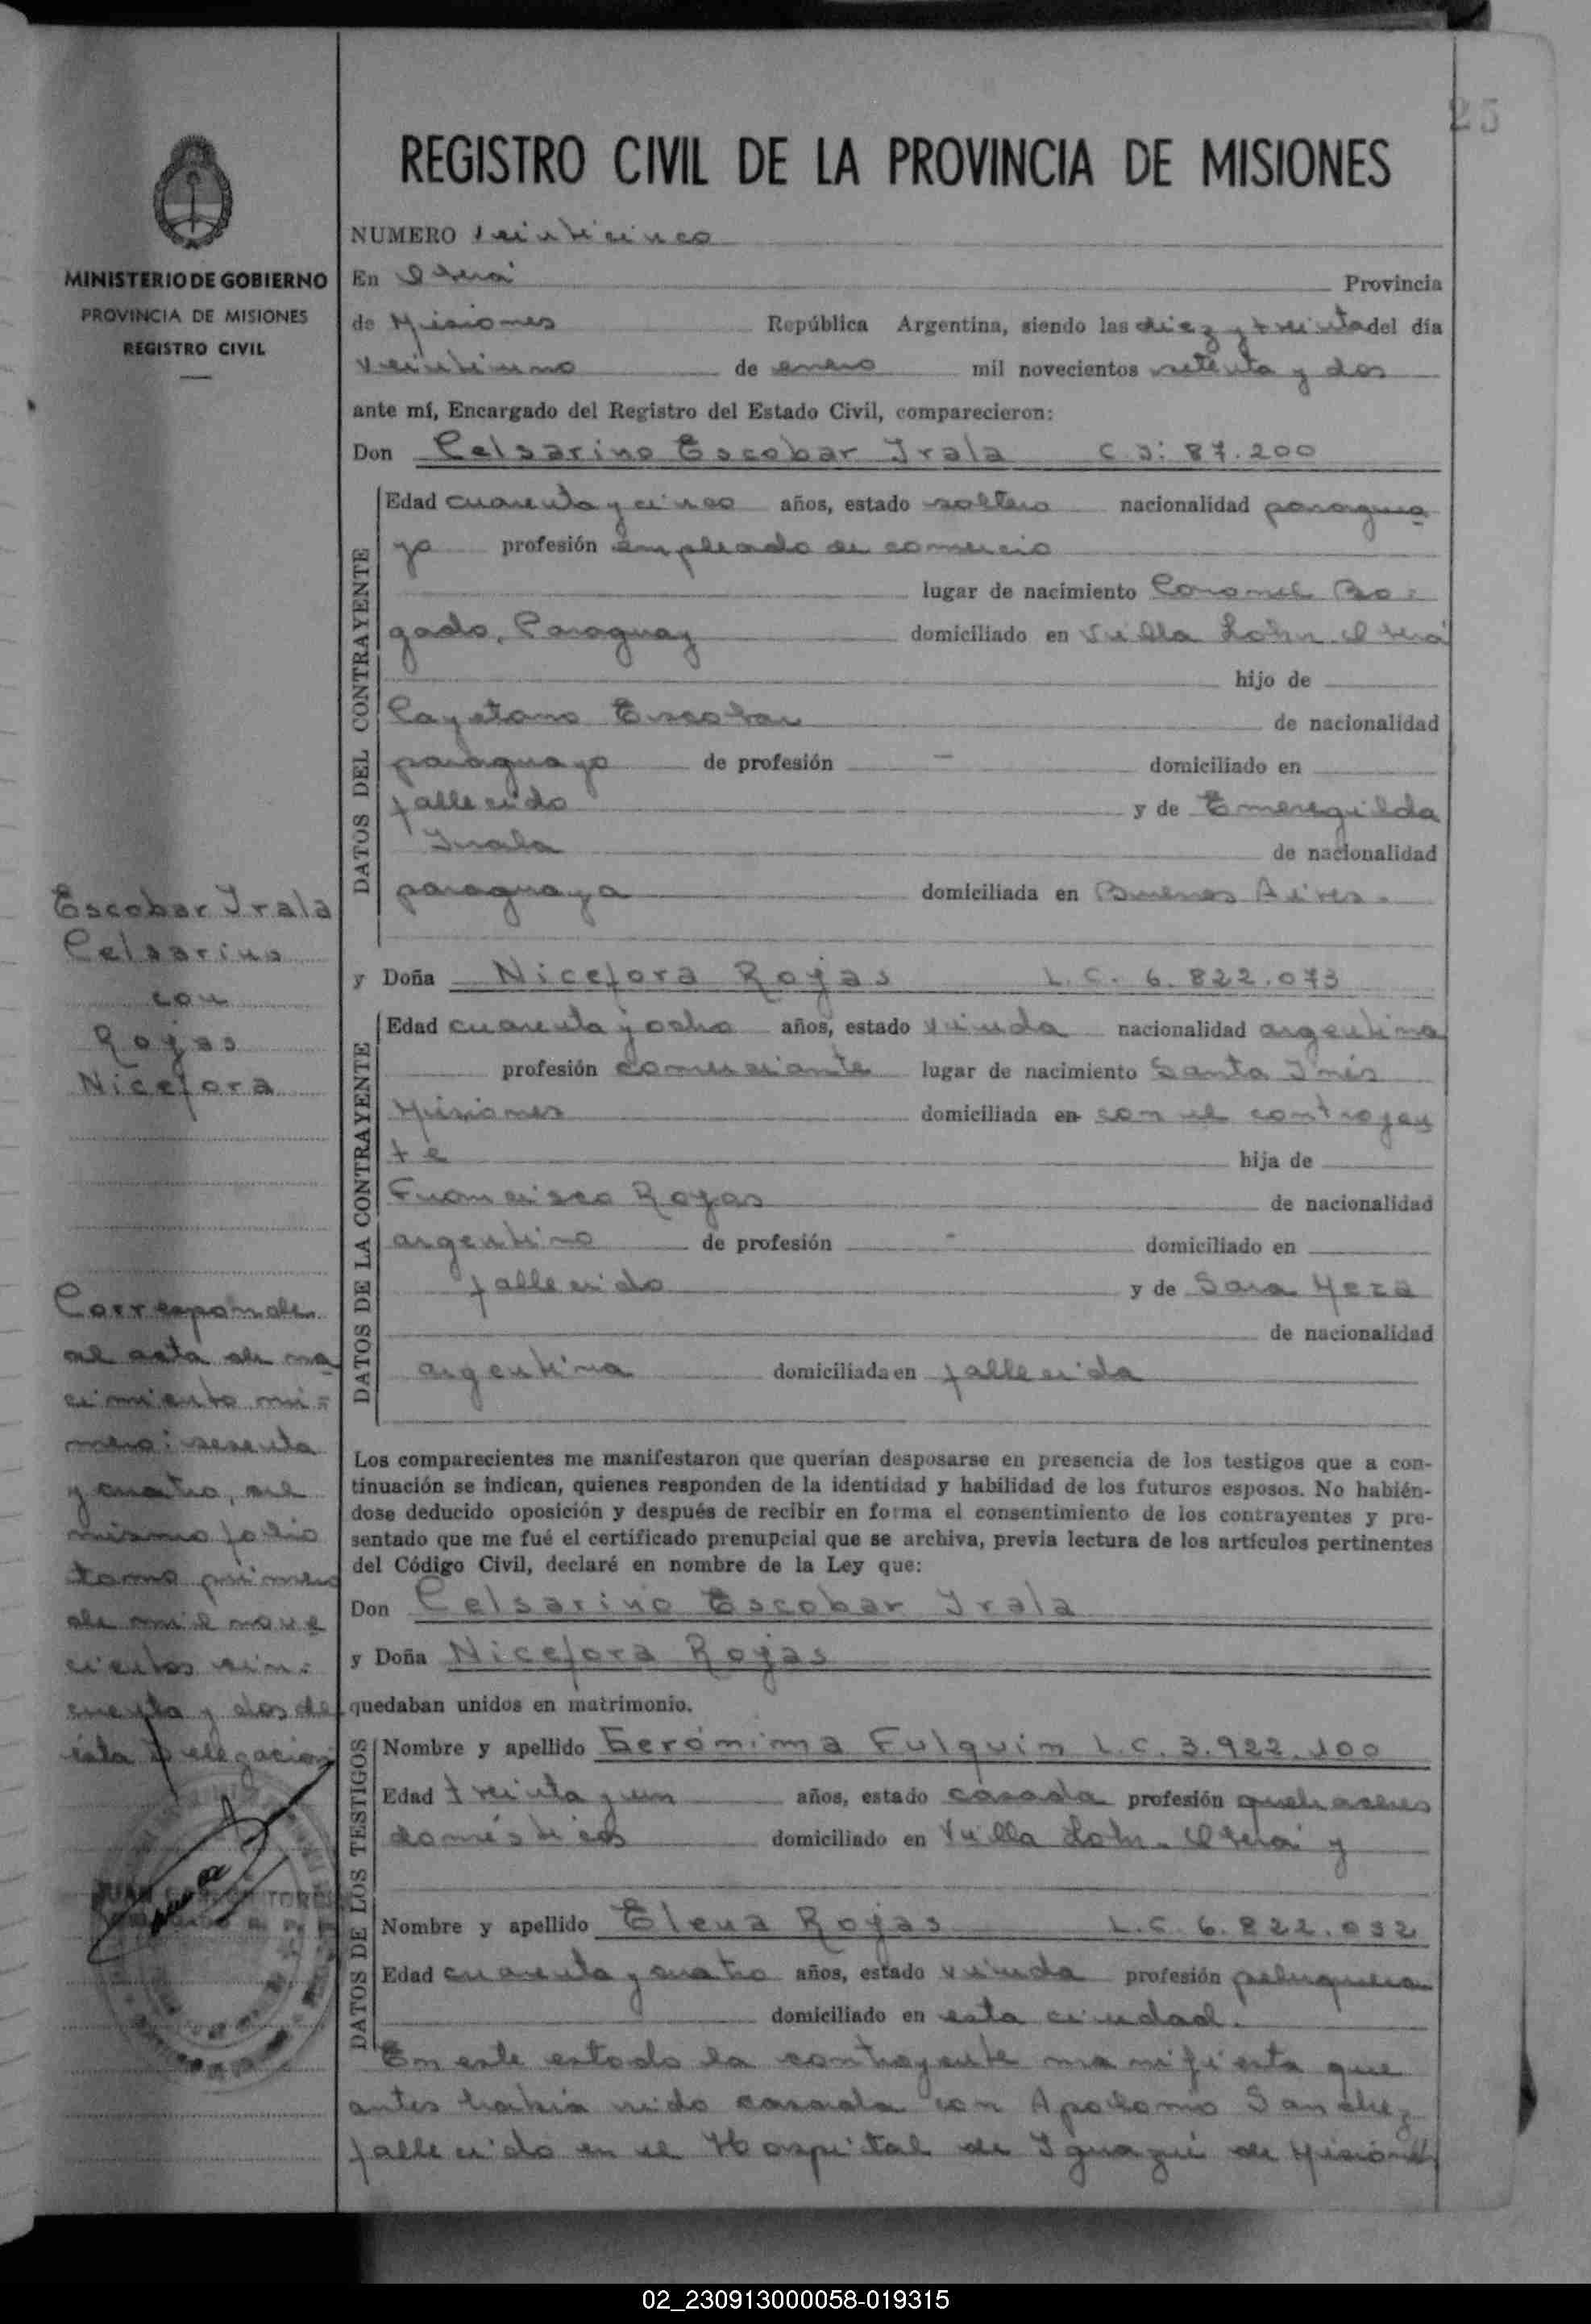 25
REGISTRO CIVIL DE LA PROVINCIA DE MISIONES
MINISTERIO DE GOBIERNO
PROVINCIA DE MISIONES
REGISTRO CIVIL
NUMERO veinticinco
En Oberá Provincia
de Misiones República Argentina, siendo las diez y treinta del día
veintiuno de enero mil novecientos setenta y dos
ante mí, Encargado del Registro del Estado Civil, comparecieron:
Don Celsarino Escobar Irala C.I: 87.200
DATOS DEL CONTRAYENTE
Edad cuarenta y cinco años, estado soltero nacionalidad paragua
yo profesión empleado de comercio
lugar de nacimiento Coronel Bo-
gado, Paraguay domiciliado en Villa Lohr. Oberá
hijo de
Cayetano Escobar de nacionalidad
paraguayo de profesión - domiciliado en
fallecido y de Emeregilda
Irala de nacionalidad
paraguaya domiciliada en Buenos Aires.
y Doña Nicefora Rojas L.C. 6.822.073
DATOS DE LA CONTRAYENTE
Edad cuarenta y ocho años, estado viuda nacionalidad argentina
profesión comerciante lugar de nacimiento Santa Inés
Misiones domiciliada en con el contrayen
te hija de
Francisco Rojas de nacionalidad
argentino de profesión - domiciliado en
fallecido y de Sara Meza
de nacionalidad
argentina domiciliada en fallecida
Los comparecientes me manifestaron que querían desposarse en presencia de los testigos que a con-
tinuación se indican, quienes responden de la identidad y habilidad de los futuros esposos. No habién-
dose deducido oposición y después de recibir en forma el consentimiento de los contrayentes y pre-
sentado que me fué el certificado prenupcial que se archiva, previa lectura de los artículos pertinentes
del Código Civil, declaré en nombre de la Ley que:
Don Celsarino Escobar Irala
y Doña Nicefora Rojas
quedaban unidos en matrimonio.
DATOS DE LOS TESTIGOS
Nombre y apellido Gerónima Fulquim L.C. 3.922.100
Edad treinta y un años, estado casada profesión quehaceres
domésticos domiciliado en Villa Lohr. Oberá y
Nombre y apellido Elena Rojas L.C. 6.822.032
Edad cuarenta y cuatro años, estado viuda profesión peluquera
domiciliado en esta ciudad.
En este estado la contrayente manifiesta que
antes había sido casada con Apolonio Sanchez
fallecido en el Hospital de Iguazú de Misiones
Escobar Irala
Celsarino
con
Rojas
Nicefora
Corresponde
al acta de na
cimiento nú=
mero: sesenta
y cuatro, del
mismo folio
tomo primero
de mil nove
cientos cin-
cuenta y dos de
esta Delegación
02_230913000058-019315